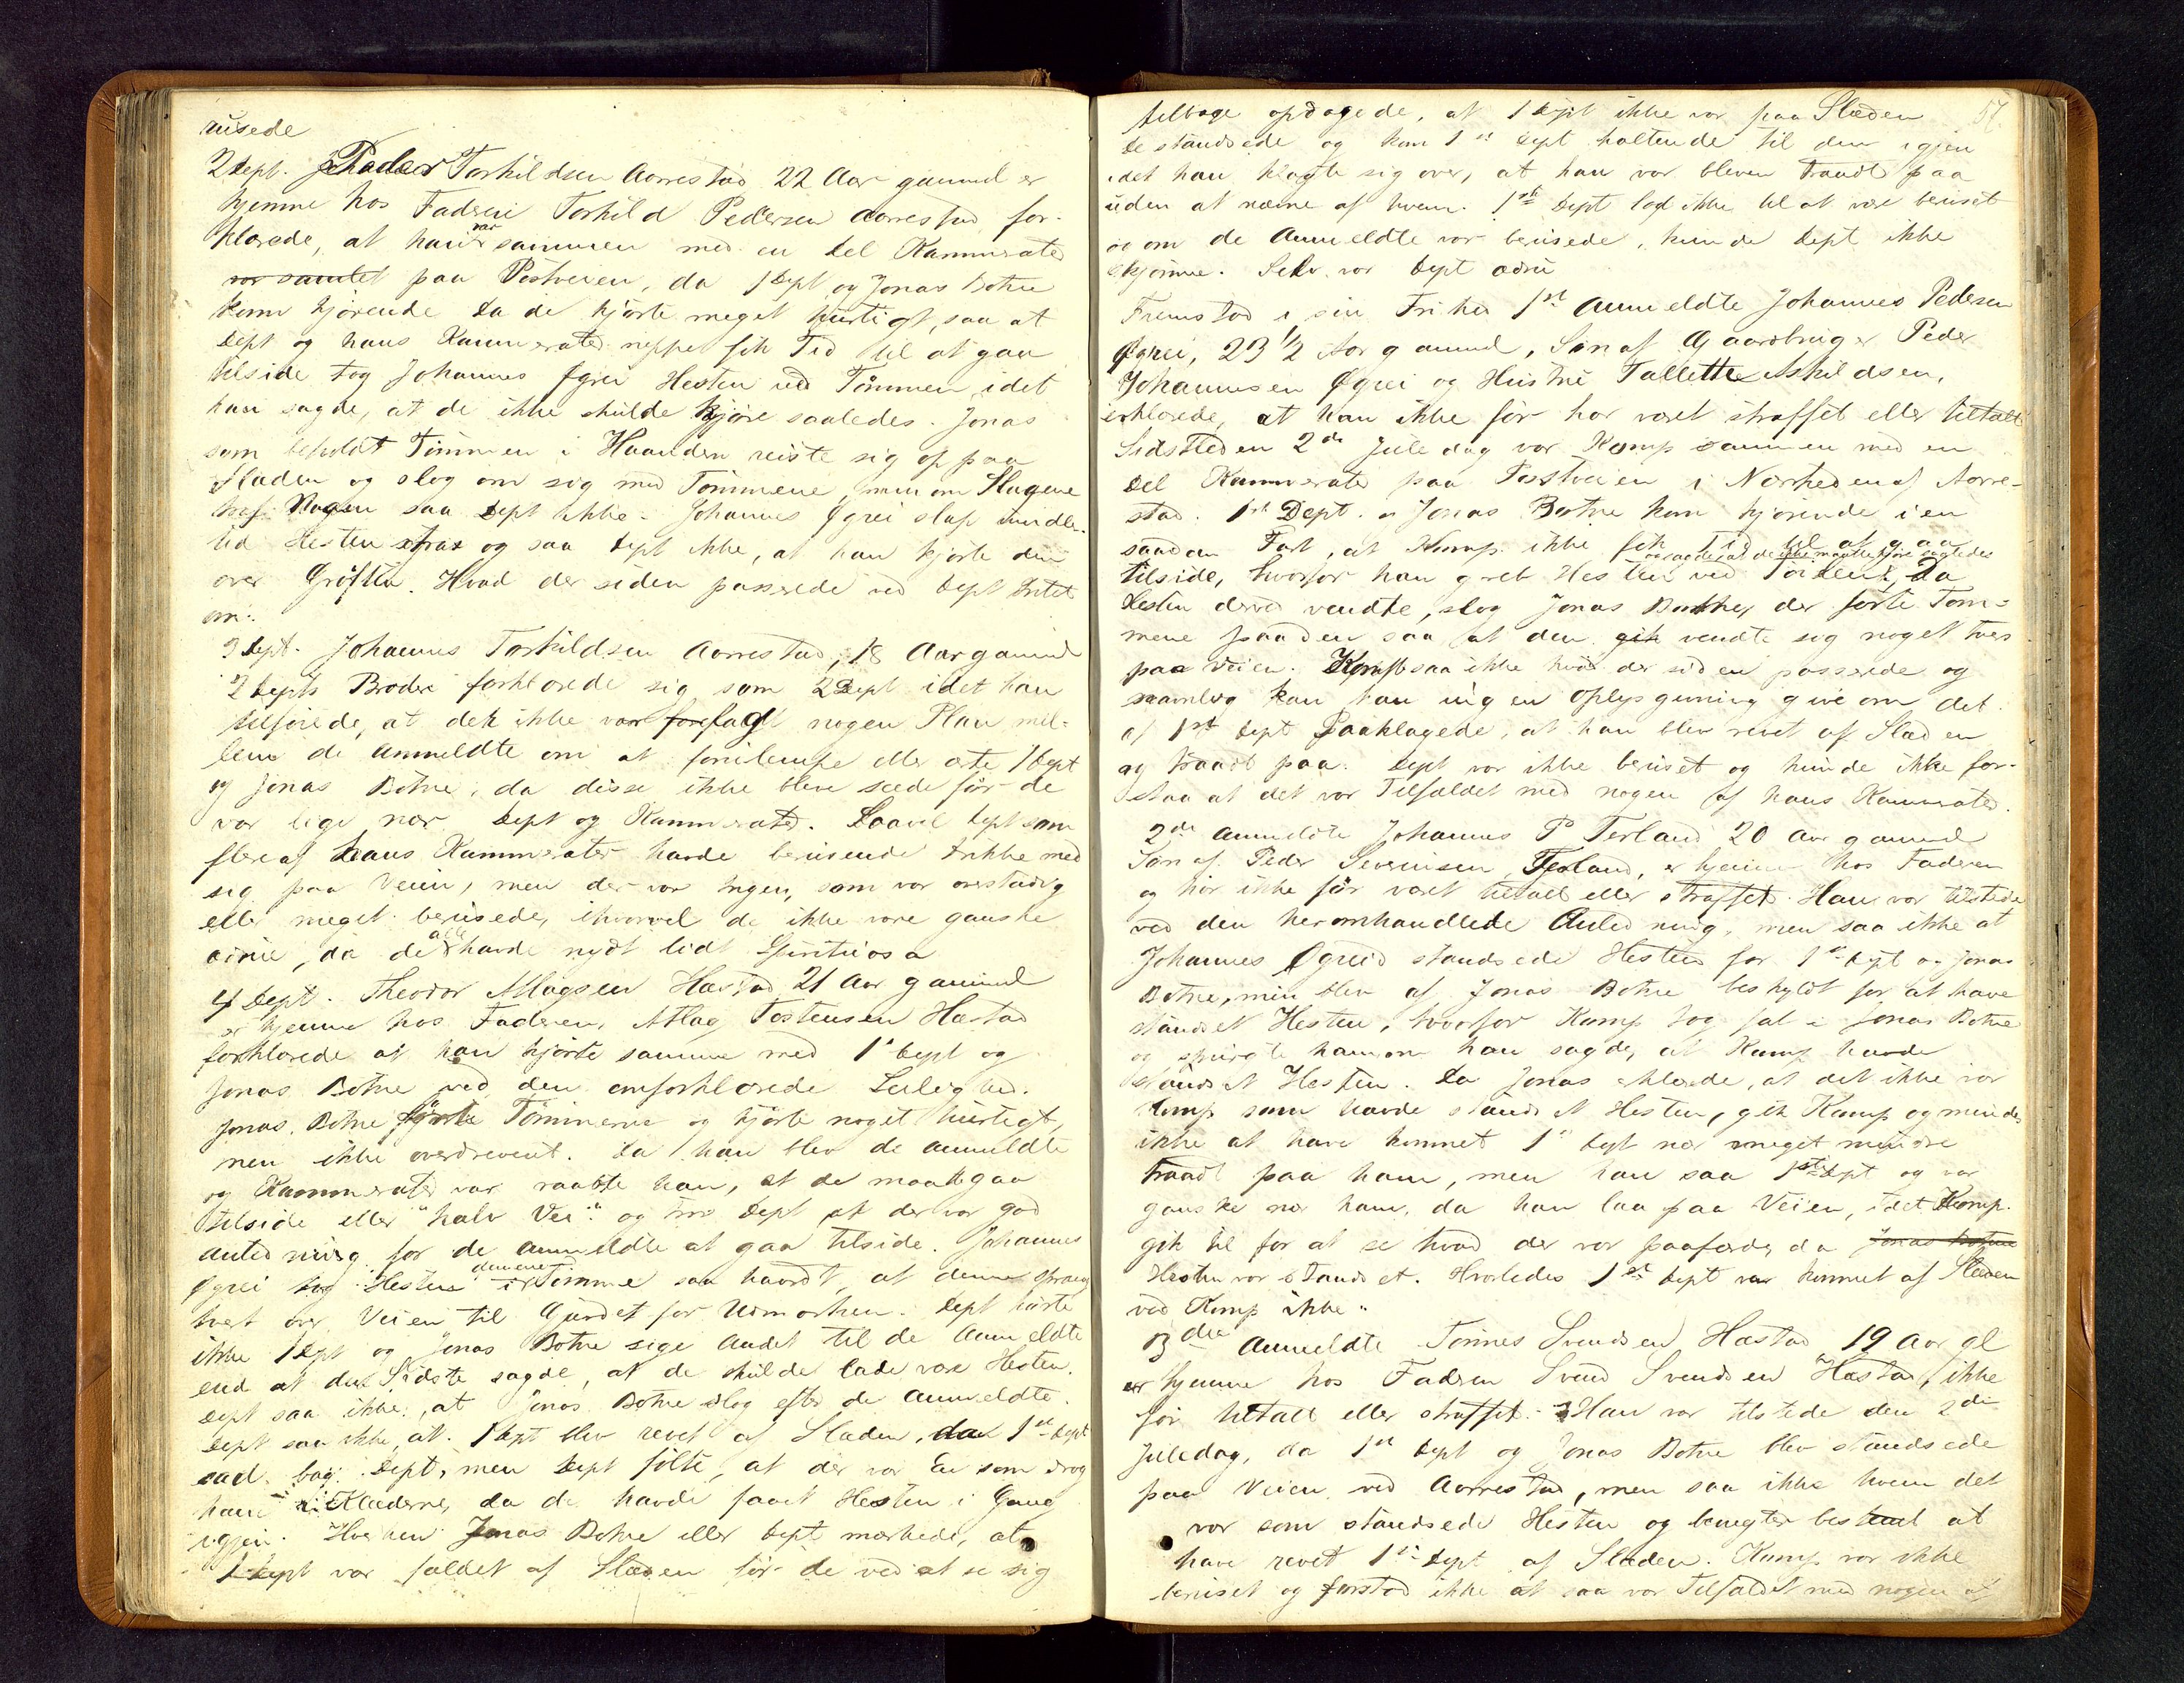 rusede
2 Dept. Peder Torkildsen Aarrestad 22 Aar gammel er
hjemme hos Faderen Torkild Pedersen Aarrestad for-
klarede, at han var sammen med en Del Kammerater
var samlet paa Postveien, da 1 Dept og Jonas Botne
kom kjørende. Da de kjørte meget hurtigt, saa at
Dept og hans Kammerater neppe fik Tid til at gaa
tilside tog Johannes Øgrei Hesten ved Tømmen, idet
han sagde, at de ikke skulde kjøre saaledes. Jonas
som beholdt Tømmen i Haanden reiste sig op paa
Slæden og slog om sig med Tømmene, men om Slagene
traf Nogen saa Dept ikke. Johannes Øgrei slap imidler-
tid Hesten strax og saa Dept ikke, at han kjørte den
over Grøften. Hvad der siden passerede ved Dept Intet
om.
3 Dept. Johannes Torkildsen Aarrestad, 18 Aar gammel
2 Depts Broder forklarede sig som 2 Dept idet han
tilføiede, at der ikke var forelagt nogen Plan mel-
lem de Anmeldte om at forulempe eller ærte 1 Dept
og Jonas Botne, da disse ikke bleve seede før de
var lige nær Dept og Kammerater. Saavel Dept som
flere af hans Kammerater havde berusende Drikke med
sig paa Veien, men der var Ingen, som var overstadig
eller meget beruset, ihvorvel de ikke vare ganske
ædrue, da de alle havde nydt lidt Spirituosa
4 Dept. Theodor Atlagsen Hæstad 21 Aar gammel
er hjemme hos Faderen, Atlag Tostensen Hæstad
forklarede at han kjørte sammen med 1ste Dept og
Jonas Botne ved den omforklarede Leilighed.
Jonas Botne førte Tømmerne og kjørte noget hurtigt,
men ikke overdrevent. Da han blev de anmeldte
og Kammerater var raabte han, at de maatte gaa
tilside eller "halv Vei" og tror Dept at der var god
Anledning for de anmeldte at gaa tilside. Johannes
Øgrei tog Hesten i den ene Tømme saa haardt, at denne sprang
tvert over Veien til Gjærdet for Udmarken. Dept hørte
ikke 1 Dept og Jonas Botne sige Andet til de Anmeldte
end at den Sidste sagde, at de skulde lade være Hesten.
Dept saa ikke, at Jonas Botne slog efter de Anmeldte.
Dept saa ikke, at 1 Dept blev revet af Slæden, da 1ste Dept
sad bag Dept, men Dept følte, at der var En som drog
ham i Klæderne, da de havde faaet Hesten i Gang
igjen. Hverken Jonas Botne eller Dept mærkede, at
1 Dept var faldet af Slæden før de ved at se sig
57.
tilbage opdagede, at 1 Dept ikke var paa Slæden
De standsede og kom 1ste Dept haltende til dem igjen
idet han klagte sig over, at han var bleven traadt paa
uden at nævne af hvem. 1ste Dept lod ikke til at være beruset
og om de Anmeldte var berusede, kunde Dept ikke
skjønne. Selv var Dept ædru
Fremstod i sin Frihed 1ste Anmeldte Johannes Pedersen
Øgrei, 23 1/2 Aar gammel, Søn af Gaardbruger Peder
Johannesen Øgrei og Hustru Tallette Askildsen,
erklærede, at han ikke før har været straffet eller tiltalt
Sidstleden 2den Juledag var Komp sammen med en
Del Kammerater paa Postveien i Nærheden af Aarre-
stad. 1ste Dept. og Jonas Botne kom kjørende i en
saadan Fart, at Komp. ikke fik Tid til at gaa
og sagde at de ikke maatte kjøre saaledes
tilside, hvorfor han greb Hesten ved Tøilen. Da
Hesten derved vendte, slog Jonas Botne, der førte Tøm-
mene paa den saa at den gik vendte sig noget tver
paa Veien. Komp saa ikke hvad der siden passerede og
navnlig kan han ingen Oplysgning give om det
af 1ste Dept Paaklagede, at han blev revet af Slæden
og traadt paa. Dept var ikke beruset og kunde ikke for-
staa at det var Tilfældet med nogen af hans Kammerater.
2den Anmeldte Johannes P Terland 20 Aar gammel
Søn af Peder Severinsen Terland, er hjemme hos Faderen
og har ikke før været tiltalt eller straffet. Han var tilstede
ved den heromhandlede Anledning, men saa ikke at
Johannes Øgreid standsede Hesten for 1ste Dept og Jonas
Botne, men blev af Jonas Botne beskyldt for at have
standset Hesten, hvorfor Komp tog fat i Jonas Botne
og spurgte ham om han sagde, at Komp havde
standset Hesten. Da Jonas erklærede, at det ikke var
Komp som havde standset Hesten, gik Komp og mindes
ikke at have kommet 1ste Dept nær meget mindre
traadt paa ham, men han saa 1ste Dept og var
ganske nær ham, da han laa paa Veien, idet Komp.
gik til for at se hvad der var paafærde, da Jonas Botne
Hesten var standset. Hvorledes 1ste Dept var kommet af Slæden
ved Komp ikke.
3die Anmeldte Tønnes Svendsen Hæstad 19 Aar gl
er hjemme hos Faderen Svend Svendsen Hæstad, ikke
før tiltalt eller straffet. Han var tilstede den 2den
Juledag, da 1ste Dept og Jonas Botne blev standsede
paa Veien ved Aarrestad, men saa ikke hvem det
var som standsede Hesten og benegter bestemt at
have revet 1ste Dept af Slæden. Komp. var ikke
beruset og forstod ikke at saa var Tilfældet med nogen af